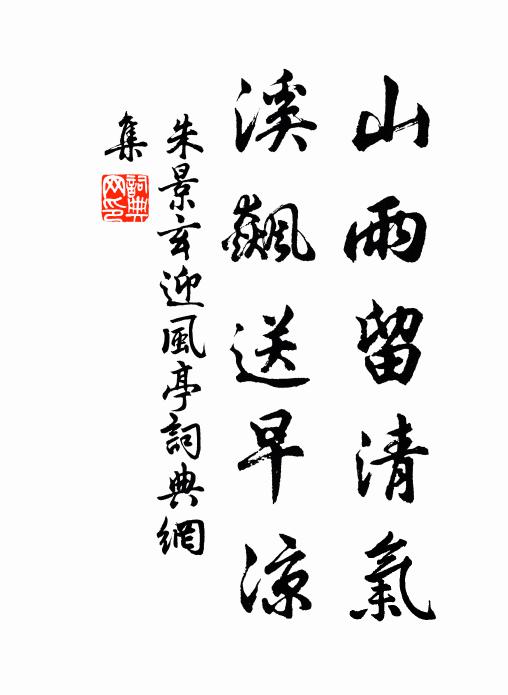 山雨留清氣
溪飆送早涼
朱景玄迎風亭詞典網
集
詞典
网印